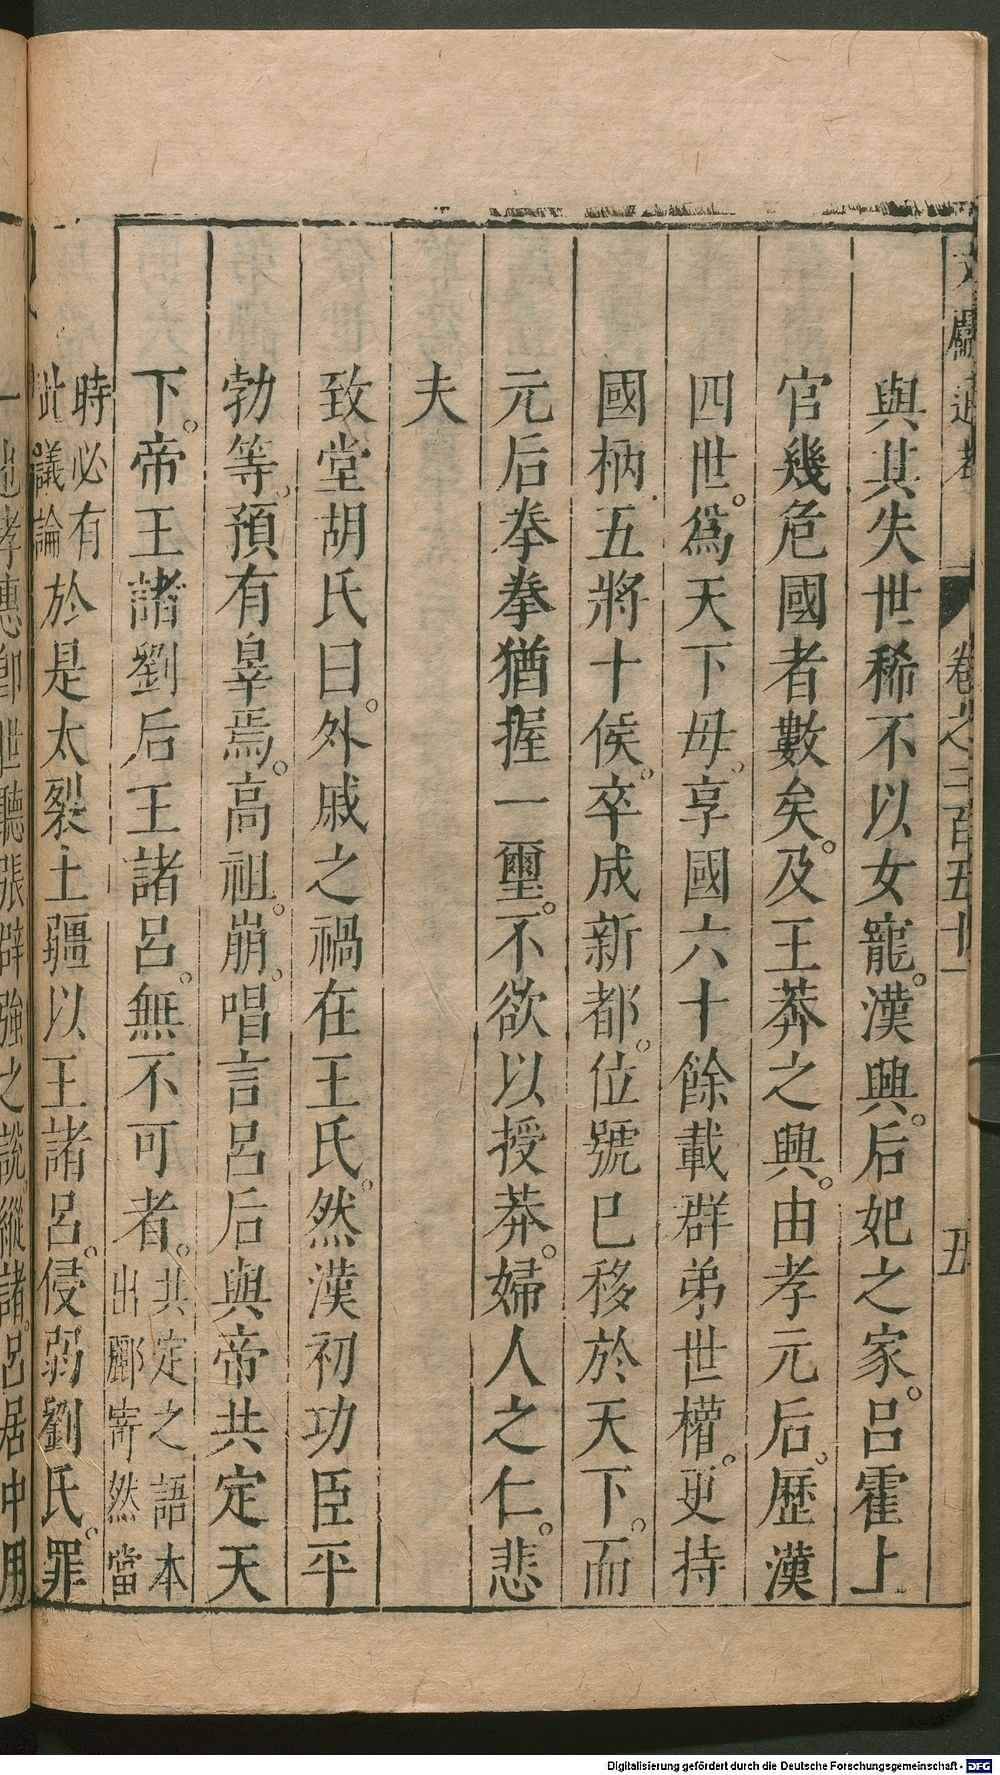 文獻通考 卷之二百五十一 五
與其失世稀不以女寵。漢興。后妃之家。呂霍上
官幾危國者數矣。及王莽之興。由孝元后。歷漢
四世。爲天下母。享國六十餘載群弟世權。更持
國柄五將十侯。卒成新都。位號已移於天下。而
元后拳拳猶握一璽。不欲以授莽。婦人之仁。悲
夫
致堂胡氏曰。外戚之禍在王氏。然漢初功臣平
勃等。預有辠焉。高祖。崩。唱言呂后與帝共定天
下。帝王諸劉后王諸呂。無不可者。共定之語本出酈寄然當
時必有此議論於是太裂土疆以王諸呂。侵弱劉氏。罪
一也孝惠卽世聽張辟強之說縱諸呂居中用
Digitalisierung gefördert durch die Deutsche Forschungsgemeinschaft - DFG